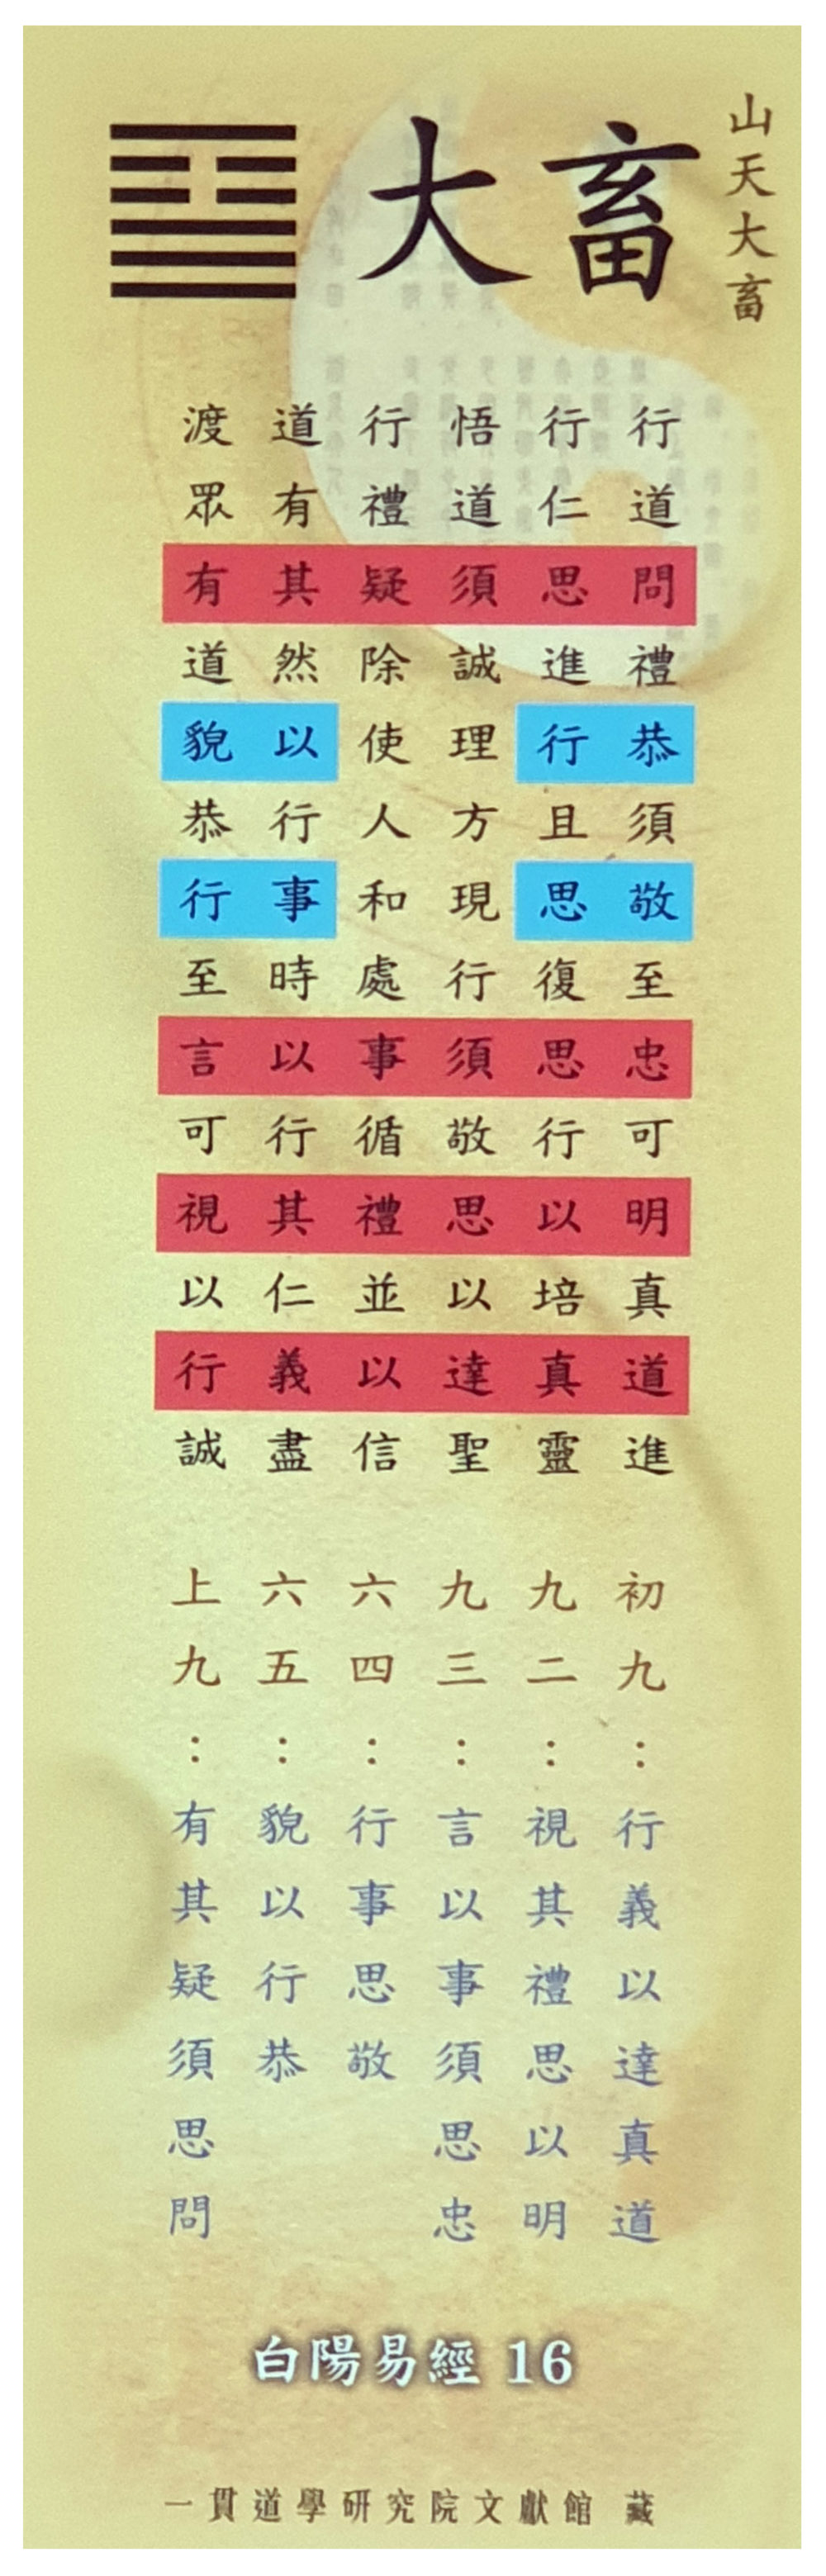 山天大畜
大畜
行道問禮恭須敬至忠可明真道進
行仁思進行且思復思行以培真靈
悟道須誠理方現行須敬思以達聖
行禮疑除使人和處事循禮並以信
道有其然以行事時以行其仁義盡
渡眾有道貌恭行至言可視以行誠
初九：行義以達真道
九二：視其禮思以明
九三：言以事須思忠
六四：行事思敬
六五：貌以行恭
上九：有其疑須思問
白陽易經 16
一貫道學研究院文獻館 藏